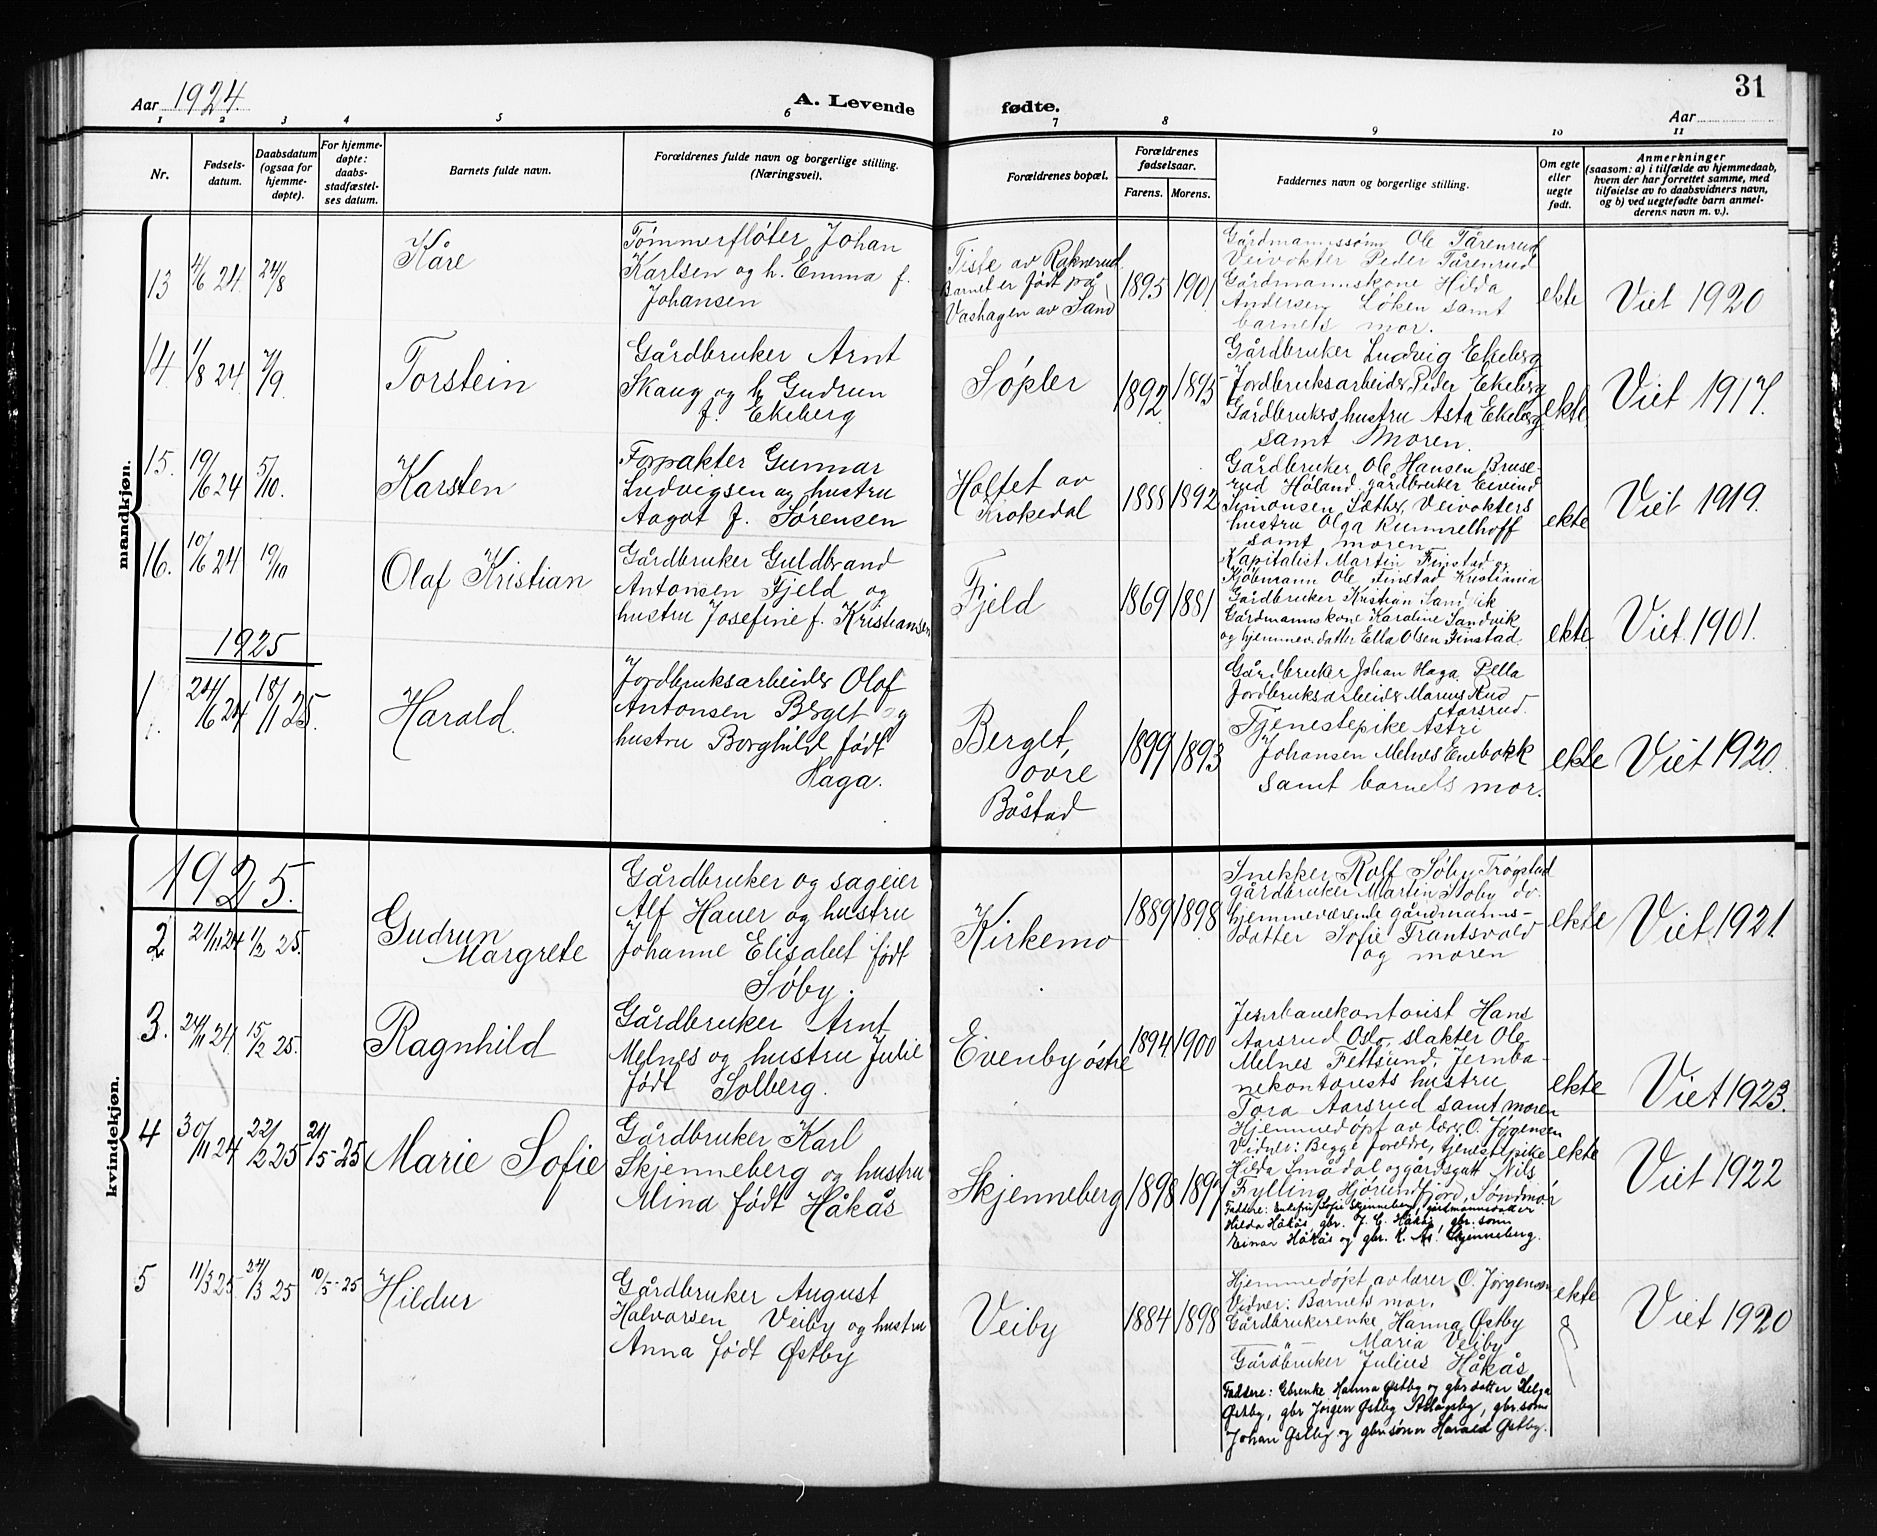 Aar 1924
A. Levende
fødte.
Aar
31
1 2 3 4 5 6 7 8 9 10 11
Nr.
Fødsels-
datum.
Daabsdatum
(ogsaa for
hjemme-
døpte).
For hjemme-
døpte:
daabs-
stadfæstel-
ses datum.
Barnets fulde navn.
Forældrenes fulde navn og borgerlige stilling.
(Næringsvei).
Forældrenes bopæl.
Forældrenes
fødselsaar.
Farens. Morens.
Faddernes navn og borgerlige stilling.
Om egte
eller
uegte
født.
Anmerkninger
(saasom: a) i tilfælde av hjemmedaab,
hvem der har forrettet samme, med
tilføielse av to daabsvidners navn,
og b) ved uegtefødte barn anmel-
derens navn m. v.).
mandkjøn.
13
4/6 24.
24/8
Kåre
Tømmerfløter Johan
Karlsen og h. Emma f.
Johansen
Tiste av Raknerud
Barnet er født på
Vashagen av Sand
1895
1901
Gårdmannssønn Ole Tårenrud
Veivokter Peder Tårenrud
Gårdmannskone Hilda
Andersen Løken samt
barnets mor.
ekte
Viet 1920
14.
1/8 24.
7/9
Torstein
Gårdbruker Arnt
Skaug og h. Gudrun
f. Ekeberg
Søpler
1892
1895
Gårdbruker Ludvig Ekeberg
Jordbruksarbeider Peder Ekeberg
Gårdbrukers hustru Asta Ekeberg
samt Moren.
ekte
Viet 1917.
15.
19/6 24
5/10.
Karsten
Forpakter Gunnar
Ludvigsen og hustru
Aagot f. Sørensen
Holtet av
Krokedal
1888
1892
Gårdbruker Ole Hansen Bruse-
rud Høland, gårdbruker Eivind
Simonsen Sæther, Veivokters
hustru Olga Rummelhoff
samt moren
ekte
Viet 1919.
16.
10/6 24
19/10
Olaf Kristian
Gårdbruker Guldbrand
Antonsen Fjeld og
hustru Josefine f. Kristiansen
Fjeld
1869
1881
Kapitalist Martin Finstad og
Kjøbmann Ole Finstad Kristiania
Gårdbruker Kristian Sandvik
Gårdmannskone Karoline Sandvik
og hjemmev. datter Ella Olsen Finstad.
ekte
Viet 1901.
1925
1.
24/6 24
18/1 25.
Harald.
Jordbruksarbeider Olaf
Antonsen Berget og
hustru Borghild født
Haga.
Berget,
øvre
Båstad
1899
1893
Gårdbruker Johan Haga
Jordbruksarbeider Marius Rud
Aarsrud.
Tjenestepike Astri
Johansen Melnes Enebakk
samt barnets mor.
ekte
Viet 1920.
kvindekjøn.
1925.
2
21/11 24
1/2 25.
Gudrun
Margrete
Gårdbruker og sageier
Alf Hauer og hustru
Johanne Elisabet født
Søby.
Kirkemo
1889
1898
Snekker Rolf Søby Trøgstad
gårdbruker Martin Søby do.
hjemmeværende gårdmanns-
datter Sofie Frantsvold
og moren
ekte
Viet 1921.
3.
24/11 24.
15/2 25.
Ragnhild
Gårdbruker Arnt
Melnes og hustru Julie
født Solberg.
Evenby østre
1894
1900
Jernbanekontorist Hans
Aarsrud Oslo, slakter Ole
Melnes Fettsund, Jernba-
nekontorists hustru
Tora Aarsrud samt moren
ekte
Viet 1923.
4
30/11 24
22/2 25
21/5-25
Marie Sofie
Gårdbruker Karl
Skjenneberg og hustru
Mina født Håkås
Skjenneberg
1898
1897
Hjemmedøpt av lærer O. Jørgensen
Vidner: Begge foreldre, tjenestepike
Hilda Smådal og gårdsgutt Nils
Fylling Hjørundfjord, Søndmør
Faddere: Enkefru Sofie Skjenneberg, gårdmannsdatter
Hilda Håkås, gbr. J. C. Håkås, gbr. sønn
Einar Håkås og gbr. K. As. Skjenneberg.
ekte
Viet 1922
5
11/3 25
24/3 25
10/5-25
Hildur
Gårdbruker August
Halvorsen Veiby og hustru
Anna født Østby
Veiby
1884
1898
Hjemmedøpt av lærer O. Jørgensen
Vidner: Barnets mor,
Gårdbrukerenke Hanna Østby
— " — Maria Veiby
Gårdbruker Julius Håkås
Faddere: Gbrenke Hanna Østby og gbr datter Helga
Østby, gbr Jørgen Østby, gbr. sønn
Johan Østby og gbr. sønn Harald Østby.
ekte
Viet 1920